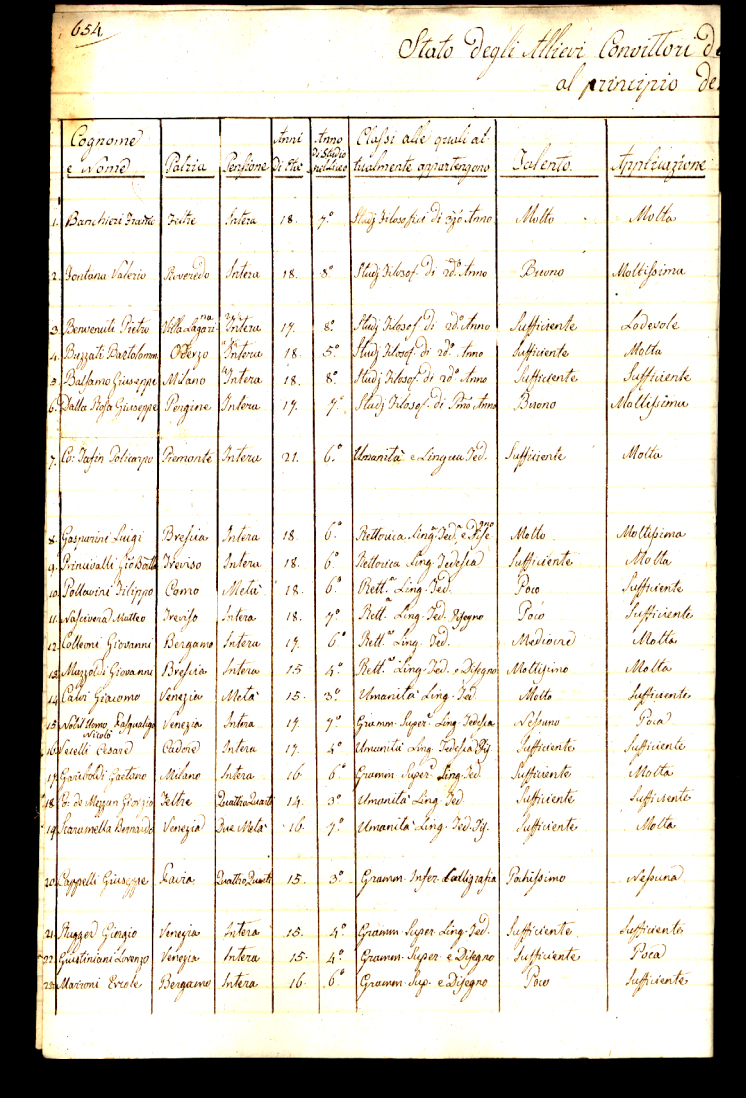 654
Stato degli Allievi Convittori de
al principio de
Cognome e Nome Patria Pensione Anni di Età Anno di Studio nel Liceo Classi alle quali attualmente appartengono Talento Applicazione
1. Banchieri Feltre Intera 18. 7.° Studj Filosofici di Anno Molto Molta
2. Fontana Valerio Roveredo Intera 18. 8° Studj Filosof. di 2do. Anno Buono Moltissima
3. Benvenuti Pietro Villa Lagarina Intera 17. 8.° Studj Filosof. di 2do. Anno Sufficiente Lodevole
4. Buzzati Bartolomeo Oderzo Intera 18. 5.° Studj Filosof. di 2do. Anno Sufficiente Molta
5. Bassamo Giuseppe Milano Intera 18. 8.° Studj Filosof. di 2do. Anno Sufficiente Sufficiente
6. Dalla Rosa Giuseppe Pergine Intera 17. 7.° Studj Filosof. di Pmo. Anno Buono Moltissima
7. Co: Policarpo Piemonte Intera 21. 6.° Umanità e Lingua Ted. Sufficiente Molta
8. Gasparini Luigi Brescia Intera 18. 6.° Rettorica Ling. Ted. e Molto Moltissima
9. Princivalli Gio Batta Treviso Intera 18. 6.° Rettorica Ling. Tedesca Sufficiente Molta
10. Pollavini Filippo Como Metà 18. 6.° Rett.a Ling. Ted. Poco Sufficiente
11. Nascivera Matteo Treviso Intera 18. 7.° Rett.a Ling. Ted. Disegno Poco Sufficiente
12. Colleoni Giovanni Bergamo Intera 17. 6.° Rett.a Ling. Ted. Mediocre Molta
13. Mazzoldi Giovanni Brescia Intera 15 4.° Rett.a Ling. Ted. e Disegno Moltissimo Molta
14. Calvi Giacomo Venezia Metà 15. 3.° Umanità Ling. Ted Molto Sufficiente
15. Nobil Uomo Pasqualigo Nicolò Venezia Intera 17. 7.° Gramm. Super.e Ling. Tedesca Nessuno Poca
16. Vecelli Cesare Cadore Intera 17. 4.° Umanità Ling. Tedesca Dis. Sufficiente Sufficiente
17. Gariboldi Gaetano Milano Intera 16. 6.° Gramm. Super. Ling. Ted. Sufficiente Molta
18. Co: de Mezzan Giorgio Feltre Quattro Quarti 14. 3.° Umanità Ling. Ted. Sufficiente Sufficiente
19. Scaramella Bernardo Venezia Due Metà 16. 7.° Umanità Ling. Ted. Dis. Sufficiente Molta
20. Cappelli Giuseppe Pavia Quattro Quarti 15. 3.° Gramm. Infer. Calligrafia Pochissimo Nessuna
21. Rugger Giorgio Venezia Intera 15. 4.° Gramm. Super. Ling. Ted. Sufficiente Sufficiente
22. Giustiniani Lorenzo Venezia Intera 15. 4.° Gramm. Super. e Disegno Sufficiente Poca
23. Marioni Ercole Bergamo Intera 16. 6.° Gramm. Sup. e Disegno Poco Sufficiente